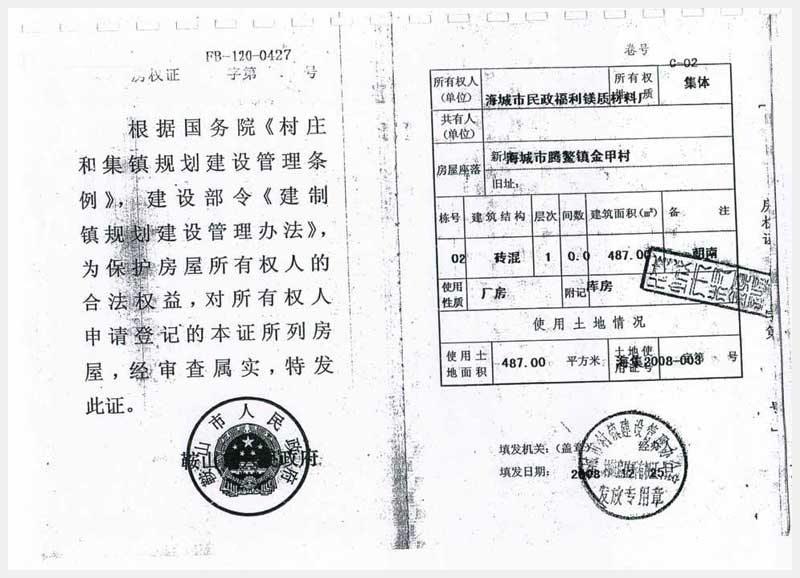 FB-120-0427
房权证 字第 号
根据国务院《村庄
和集镇规划建设管理条
例》，建设部令《建制
镇规划建设管理办法》，
为保护房屋所有权人的
合法权益，对所有权人
申请登记的本证所列房
屋，经审查属实，特发
此证。
鞍山市人民政府
鞍山 政府
卷号
C-02
所有权人
(单位)
海城市民政福利镁质材料厂
所有权
性 质
集体
共有人
(单位)
房屋座落
新址:海城市腾鳌镇金甲村
旧址:
栋号 建筑结构 层次 间数 建筑面积(m²) 备 注
02 砖混 1 0.0 487.00 朝南
使用
性质
厂房
附记
库房
使用土地情况
使用土
地面积
487.00 平方米
土地使
用证号
海集2008-003 字第 号
填发机关:(盖章)
填发日期: 2008 12 25
发放专用章
房权证 字第 号